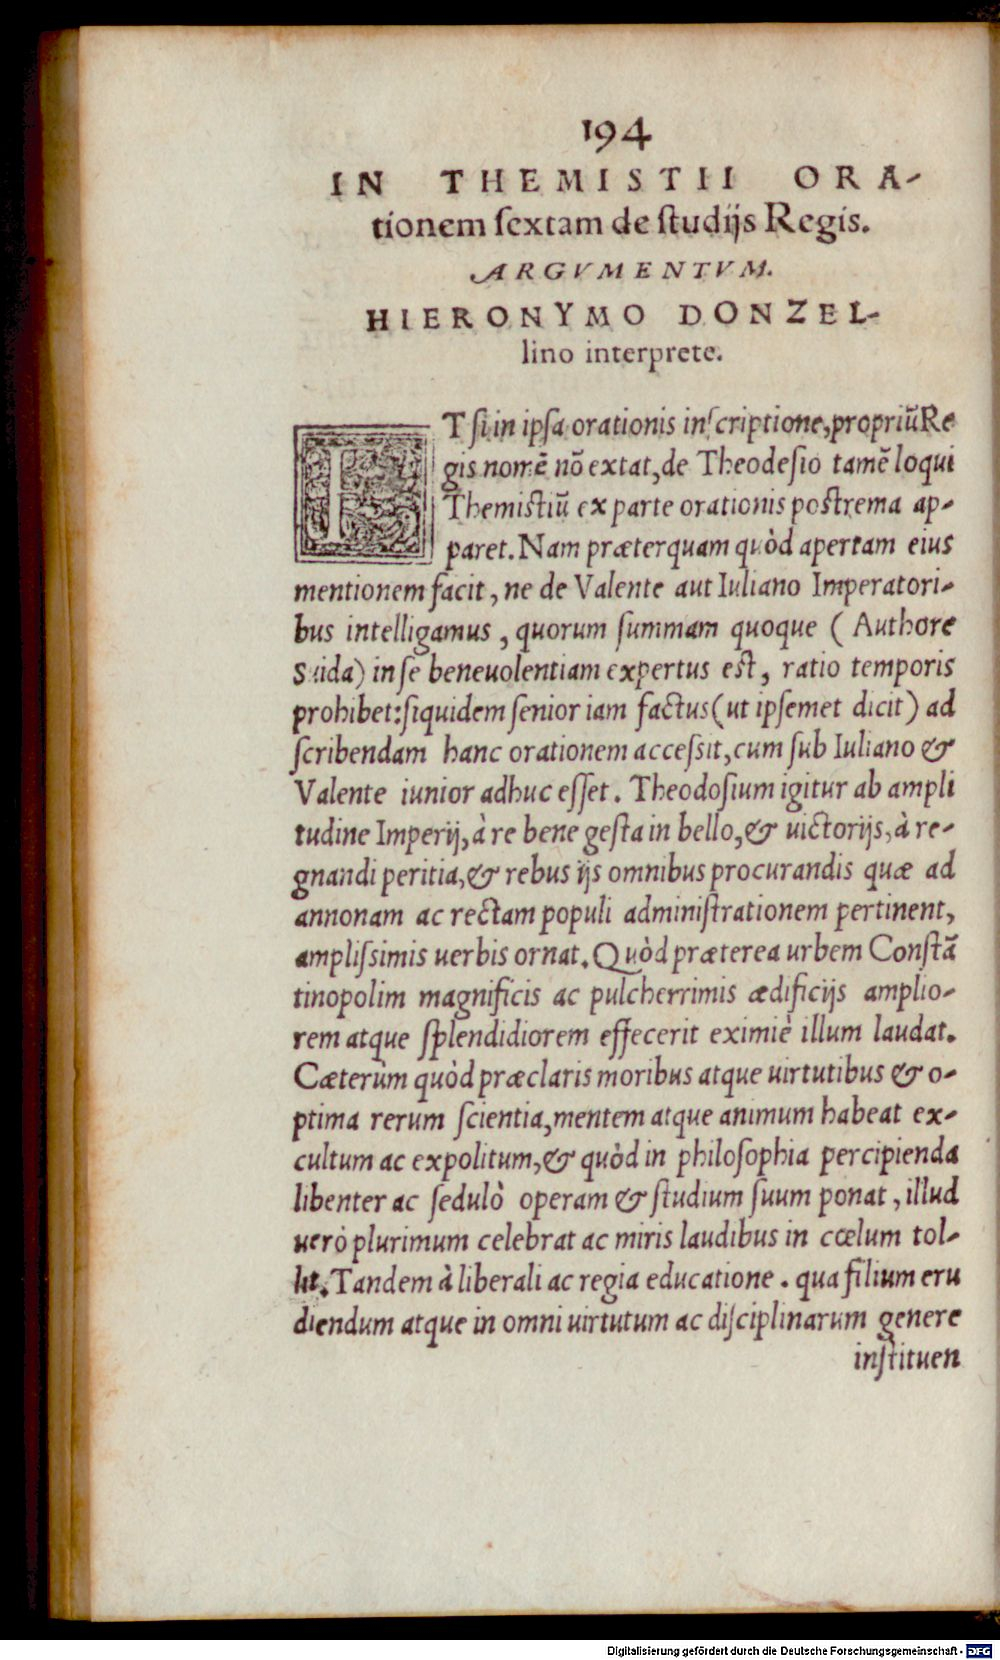 194
IN THEMISTII ORA-
tionem sextam de studijs Regis.
ARGVMENTVM.
HIERONYMO DONZEL-
lino interprete.
ET si in ipsa orationis inscriptione, propriū Re
gis nomē nō extat, de Theodesio tamē loqui
Themistiū ex parte orationis postrema ap-
paret. Nam præterquam quòd apertam eius
mentionem facit, ne de Valente aut Iuliano Imperatori-
bus intelligamus, quorum summam quoque (Authore
Suida) in se beneuolentiam expertus est, ratio temporis
prohibet: siquidem senior iam factus (ut ipsemet dicit) ad
scribendam hanc orationem accessit, cum sub Iuliano &
Valente iunior adhuc esset. Theodosium igitur ab ampli
tudine Imperij, à re bene gesta in bello, & uictorijs, à re-
gnandi peritia, & rebus ijs omnibus procurandis quæ ad
annonam ac rectam populi administrationem pertinent,
amplissimis uerbis ornat. Quòd præterea urbem Constā
tinopolim magnificis ac pulcherrimis ædificijs amplio-
rem atque splendidiorem effecerit eximiè illum laudat.
Cæterùm quòd præclaris moribus atque uirtutibus & o-
ptima rerum scientia, mentem atque animum habeat ex-
cultum ac expolitum, & quòd in philosophia percipienda
libenter ac sedulò operam & studium suum ponat, illud
uerò plurimum celebrat ac miris laudibus in cœlum tol-
lit. Tandem à liberali ac regia educatione. qua filium eru
diendum atque in omni uirtutum ac disciplinarum genere
instituen
Digitalisierung gefördert durch die Deutsche Forschungsgemeinschaft - DFG